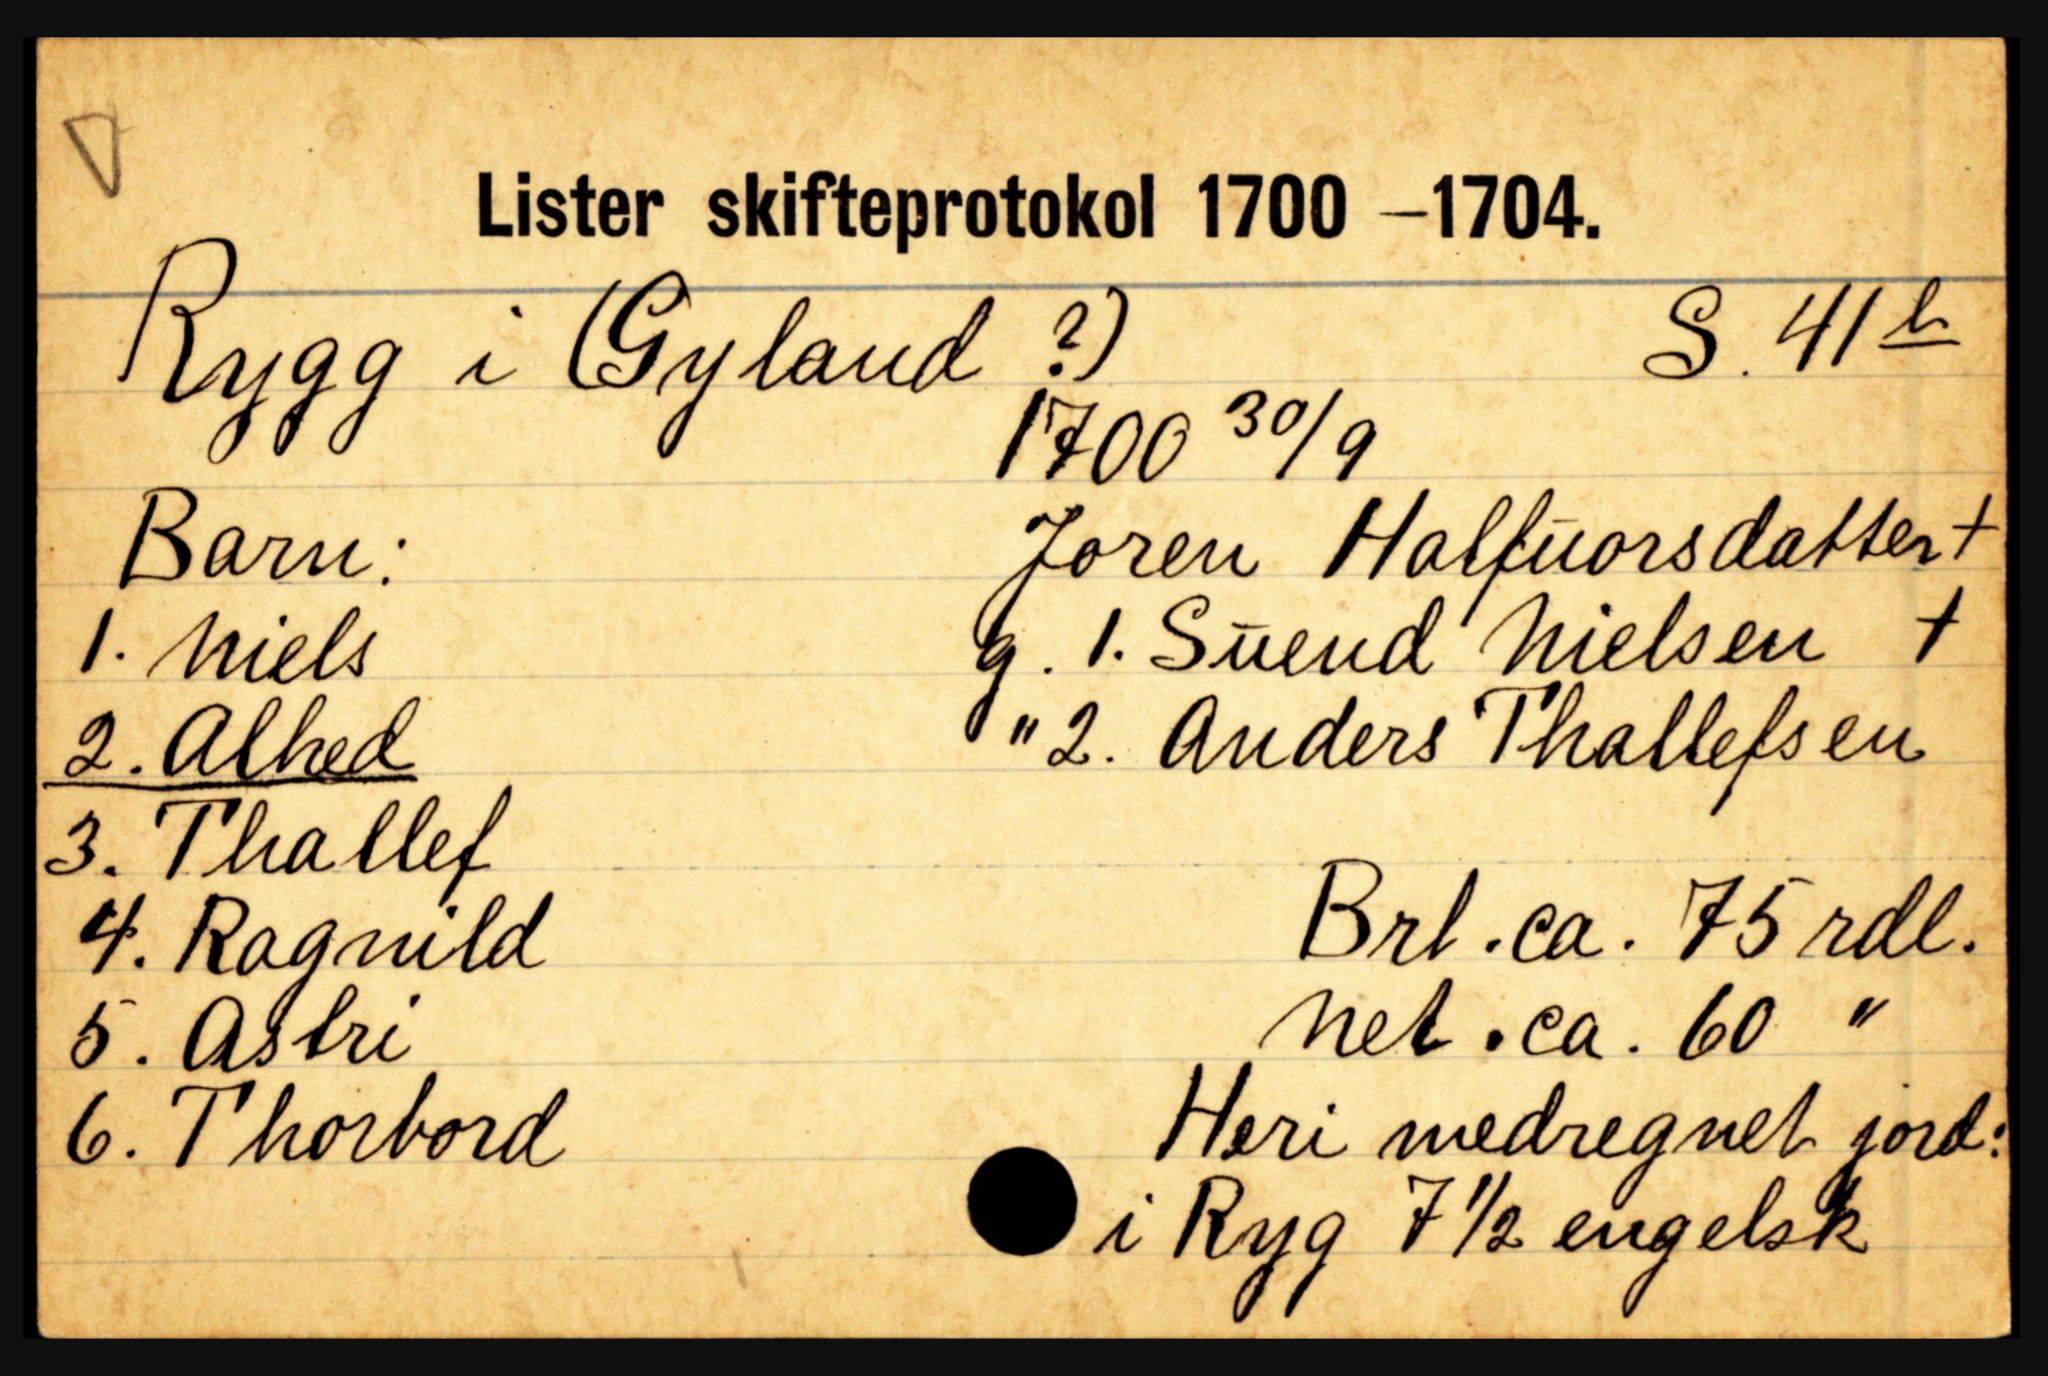 Lister skifteprotokol 1700 – 1704.
Rygg i (Gyland ?)
S. 41 b
1700 30/9
Joren Halfuorsdatter †
g. 1. Suend Nielsen †
" 2. Anders Thallefsen
Barn:
1. Niels
2. Alhed
3. Thallef
4. Ragnild
5. Astri
6. Thorbord
Brt. ca. 75 rdl.
Net. ca. 60 "
Heri medregnet jord:
i Ryg 7 1/2 engelsk